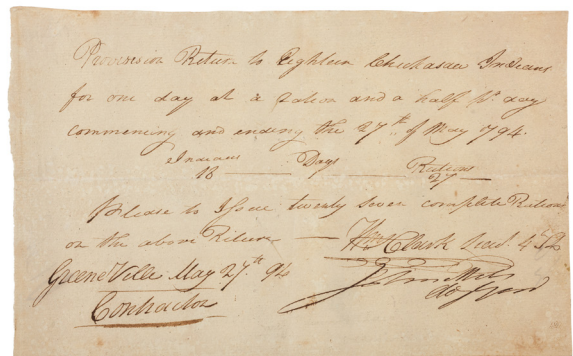 Provision Return to Eighteen Chickasaw Indians
for one day at a Ration and a half pr. day
commencing and ending the 27th of May 794.
Indians Days Rations
18 27
Please to Issue twenty seven complete Rations
on the above Return
Wm Clark Lieut.
Greene Ville May 27th 94
Contractor